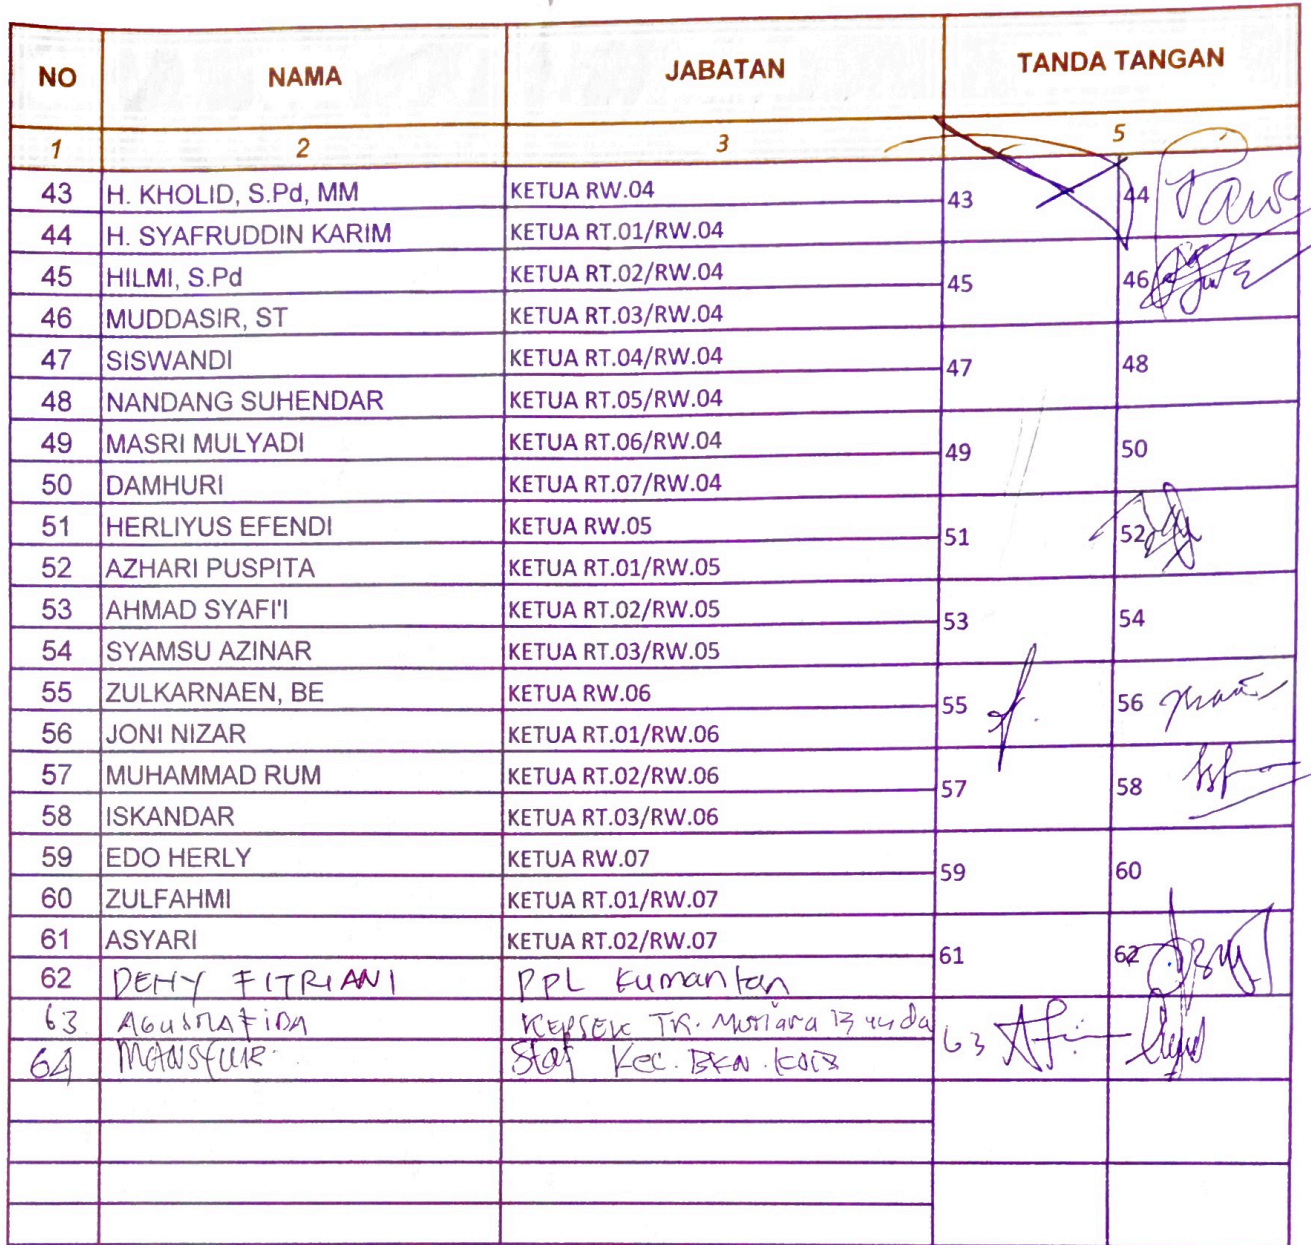 NO NAMA JABATAN TANDA TANGAN
1 2 3 5
43 H. KHOLID, S.Pd, MM KETUA RW.04 43 44
44 H. SYAFRUDDIN KARIM KETUA RT.01/RW.04
45 HILMI, S.Pd KETUA RT.02/RW.04 45 46
46 MUDDASIR, ST KETUA RT.03/RW.04
47 SISWANDI KETUA RT.04/RW.04 47 48
48 NANDANG SUHENDAR KETUA RT.05/RW.04
49 MASRI MULYADI KETUA RT.06/RW.04 49 50
50 DAMHURI KETUA RT.07/RW.04
51 HERLIYUS EFENDI KETUA RW.05 51 52
52 AZHARI PUSPITA KETUA RT.01/RW.05
53 AHMAD SYAFI'I KETUA RT.02/RW.05 53 54
54 SYAMSU AZINAR KETUA RT.03/RW.05
55 ZULKARNAEN, BE KETUA RW.06 55 56
56 JONI NIZAR KETUA RT.01/RW.06
57 MUHAMMAD RUM KETUA RT.02/RW.06 57 58
58 ISKANDAR KETUA RT.03/RW.06
59 EDO HERLY KETUA RW.07 59 60
60 ZULFAHMI KETUA RT.01/RW.07
61 ASYARI KETUA RT.02/RW.07 61 62
62 DEHY FITRIANI PPL Kumantan
63 KEPSEK TK. Mutiara Bunda 63
64 Staf Kec. BKN